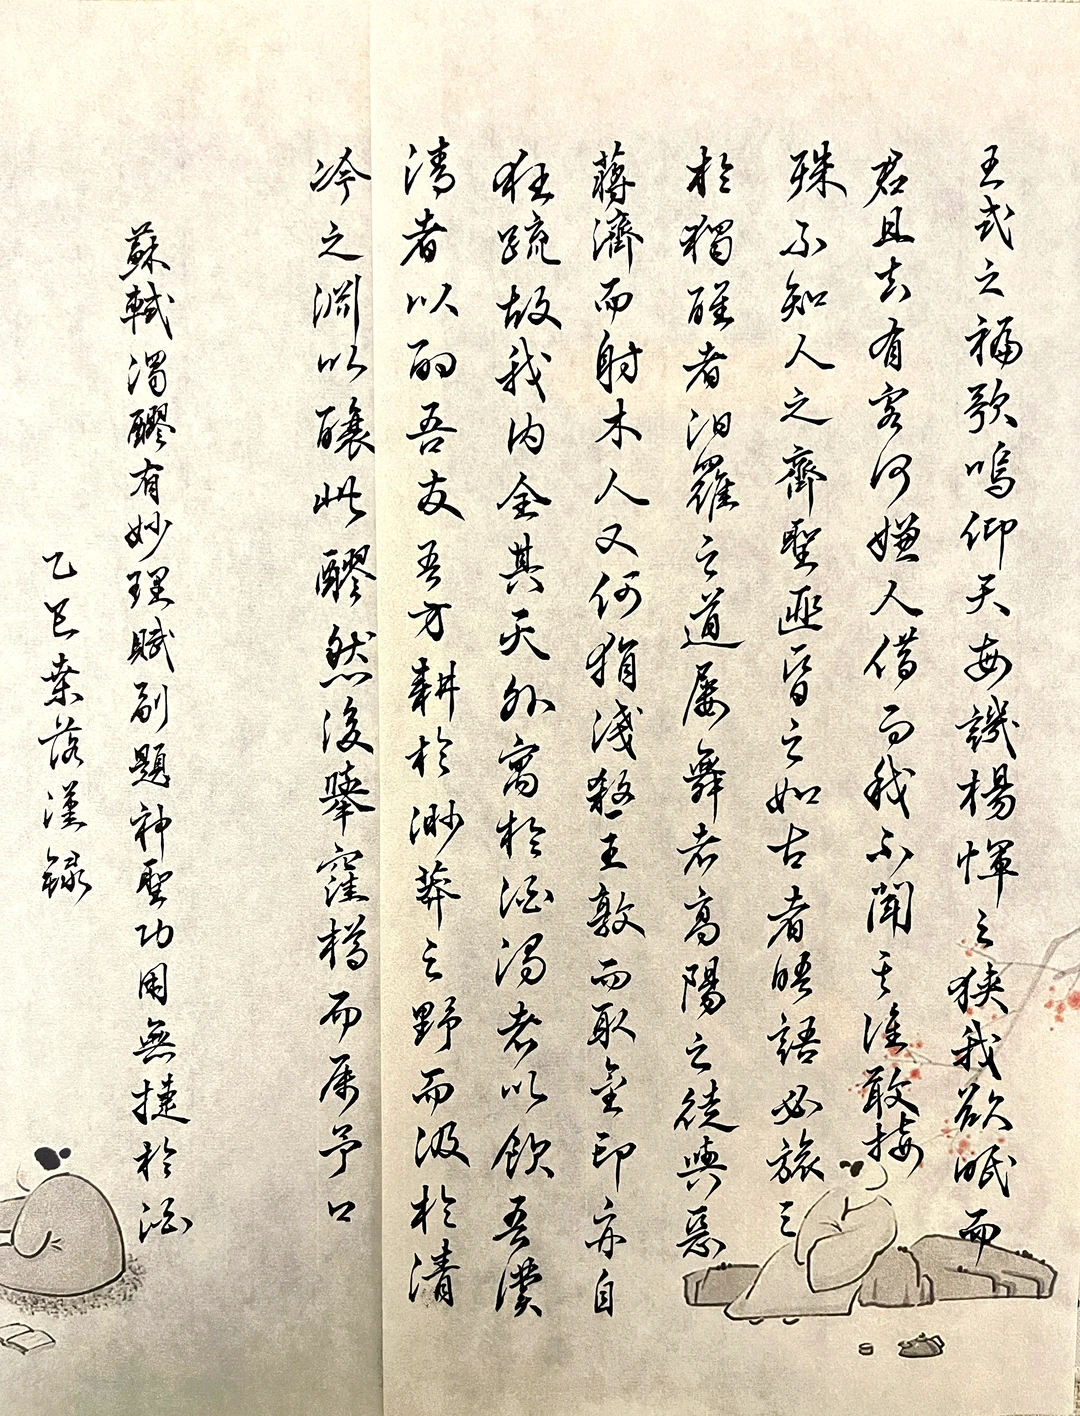 王式之福歌嗚仰天每譏楊惲之狹我欲眠而
君且去有客何嫌人借而我不聞其誰敢接
殊不知人之齊聖匪昏之如古者晤語必旅之
於獨醒者汨羅之道屢舞者高陽之徒與惡
蔣濟而射木人又何狷淺殺王敦而取金印亦自
狂疏故我内全其天外寓於酒濁者以飲吾濮
清者以酌吾友吾方耕於渺莽之野而汲於清
冷之淵以釀此醪然後舉窪樽而属予口
蘇軾濁醪有妙理賦副題神聖功用無捷於酒
乙巳桒落漢録